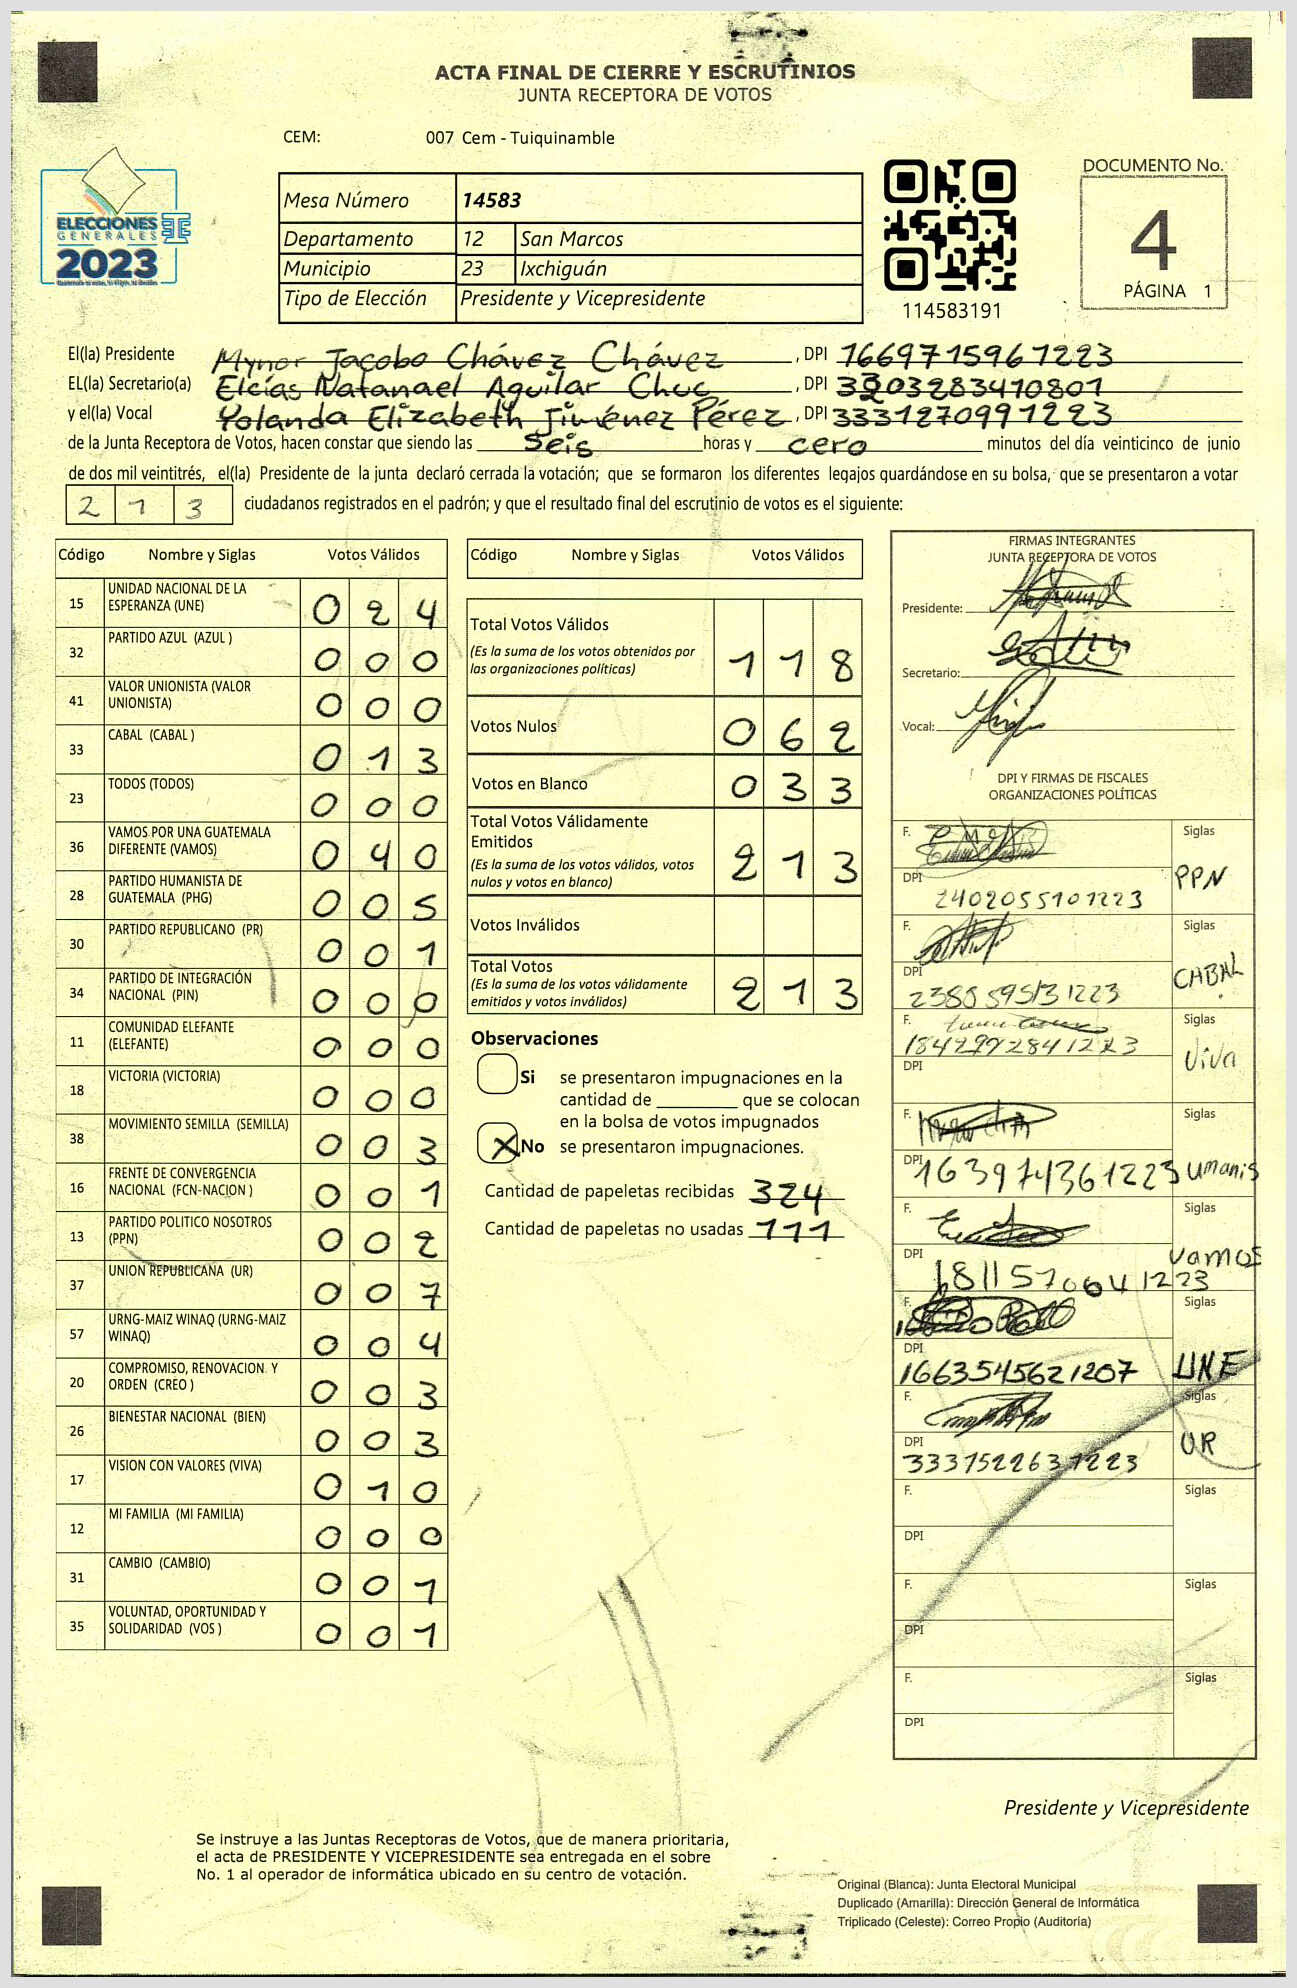 ACTA FINAL DE CIERRE Y ESCRUTINIOS
JUNTA RECEPTORA DE VOTOS
CEM: 007 Cem - Tuiquinamble
ELECCIONES
GENERALES
2023
Mesa Número 14583
Departamento 12 San Marcos
Municipio 23 Ixchiguán
Tipo de Elección Presidente y Vicepresidente
114583191
DOCUMENTO No.
4
PÁGINA 1
El(la) Presidente Mynor Jacobo Chávez Chávez, DPI 1669715961223
EL(la) Secretario(a) Elcías Natanael Aguilar Chuc, DPI 3203283410801
y el(la) Vocal Yolanda Elizabeth Jiménez Pérez, DPI 3331270991223
de la Junta Receptora de Votos, hacen constar que siendo las seis horas y cero minutos del día veinticinco de junio
de dos mil veintitrés, el(la) Presidente de la junta declaró cerrada la votación; que se formaron los diferentes legajos quardándose en su bolsa, que se presentaron a votar
213 ciudadanos registrados en el padrón; y que el resultado final del escrutinio de votos es el siguiente:
Código Nombre y Siglas Votos Válidos
15 UNIDAD NACIONAL DE LA ESPERANZA (UNE) 024
32 PARTIDO AZUL (AZUL ) 000
41 VALOR UNIONISTA (VALOR UNIONISTA) 000
33 CABAL (CABAL ) 013
23 TODOS (TODOS) 000
36 VAMOS POR UNA GUATEMALA DIFERENTE (VAMOS) 040
28 PARTIDO HUMANISTA DE GUATEMALA (PHG) 005
30 PARTIDO REPUBLICANO (PR) 001
34 PARTIDO DE INTEGRACIÓN NACIONAL (PIN) 000
11 COMUNIDAD ELEFANTE (ELEFANTE) 000
18 VICTORIA (VICTORIA) 000
38 MOVIMIENTO SEMILLA (SEMILLA) 003
16 FRENTE DE CONVERGENCIA NACIONAL (FCN-NACION ) 001
13 PARTIDO POLITICO NOSOTROS (PPN) 002
37 UNION REPUBLICANA (UR) 007
57 URNG-MAIZ WINAQ (URNG-MAIZ WINAQ) 004
20 COMPROMISO, RENOVACION. Y ORDEN (CREO ) 003
26 BIENESTAR NACIONAL (BIEN) 003
17 VISION CON VALORES (VIVA) 010
12 MI FAMILIA (MI FAMILIA) 000
31 CAMBIO (CAMBIO) 001
35 VOLUNTAD, OPORTUNIDAD Y SOLIDARIDAD (VOS ) 001
Código Nombre y Siglas Votos Válidos
Total Votos Válidos 118
(Es la suma de los votos obtenidos por
las organizaciones políticas)
Votos Nulos 062
Votos en Blanco 033
Total Votos Válidamente
Emitidos 213
(Es la suma de los votos válidos, votos
nulos y votos en blanco)
Votos Inválidos
Total Votos 213
(Es la suma de los votos válidamente
emitidos y votos inválidos)
Observaciones
Si se presentaron impugnaciones en la
cantidad de ________ que se colocan
en la bolsa de votos impugnados
X No se presentaron impugnaciones.
Cantidad de papeletas recibidas 324
Cantidad de papeletas no usadas 111
FIRMAS INTEGRANTES
JUNTA RECEPTORA DE VOTOS
Presidente:
Secretario:
Vocal:
DPI Y FIRMAS DE FISCALES
ORGANIZACIONES POLÍTICAS
F. Siglas PPN
DPI 2402055101223
F. Siglas CABAL
DPI 2380595131223
F. Siglas Viva
1842992841223
DPI
F. Siglas Umanis
DPI 1639741361223
F. Siglas Vamos
DPI 1681157064 1223
F. Siglas UNE
DPI 1663545621207
F. Siglas UR
DPI 3331522631223
F. Siglas
DPI
F. Siglas
DPI
F. Siglas
DPI
Presidente y Vicepresidente
Se instruye a las Juntas Receptoras de Votos, que de manera prioritaria,
el acta de PRESIDENTE Y VICEPRESIDENTE sea entregada en el sobre
No. 1 al operador de informática ubicado en su centro de votación.
Original (Blanca): Junta Electoral Municipal
Duplicado (Amarilla): Dirección General de Informática
Triplicado (Celeste): Correo Propio (Auditoría)